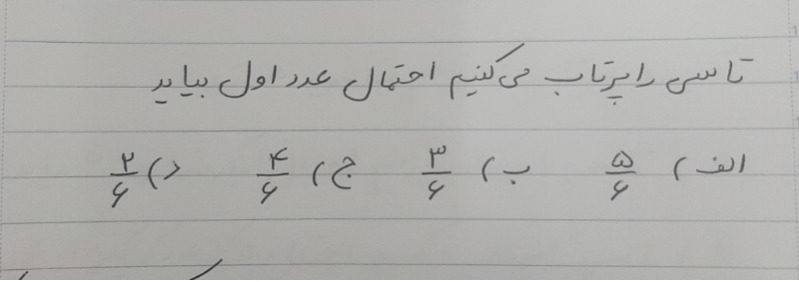 تاسی را پرتاب می‌کنیم احتمال عدد اول بیاید
الف) ۵/۶ ب) ۳/۶ ج) ۴/۶ د) ۲/۶